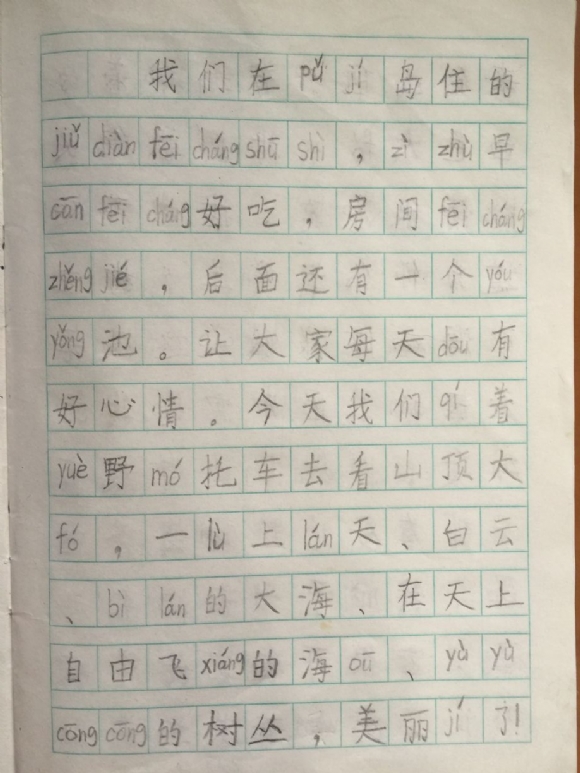 我们在pǔ jí岛住的
jiǔ diàn fēi cháng shū shì，zì zhù早
cān fēi cháng好吃，房间fēi cháng
zhěng jié，后面还有一个yóu
yǒng池。让大家每天dōu有
好心情。今天我们qí着
yuè野mó托车去看山顶大
fó，一lù上lán天、白云
、bì lán的大海、在天上
自由飞xiáng的海ōu、yù yù
cōng cōng的树丛，美丽jí了!